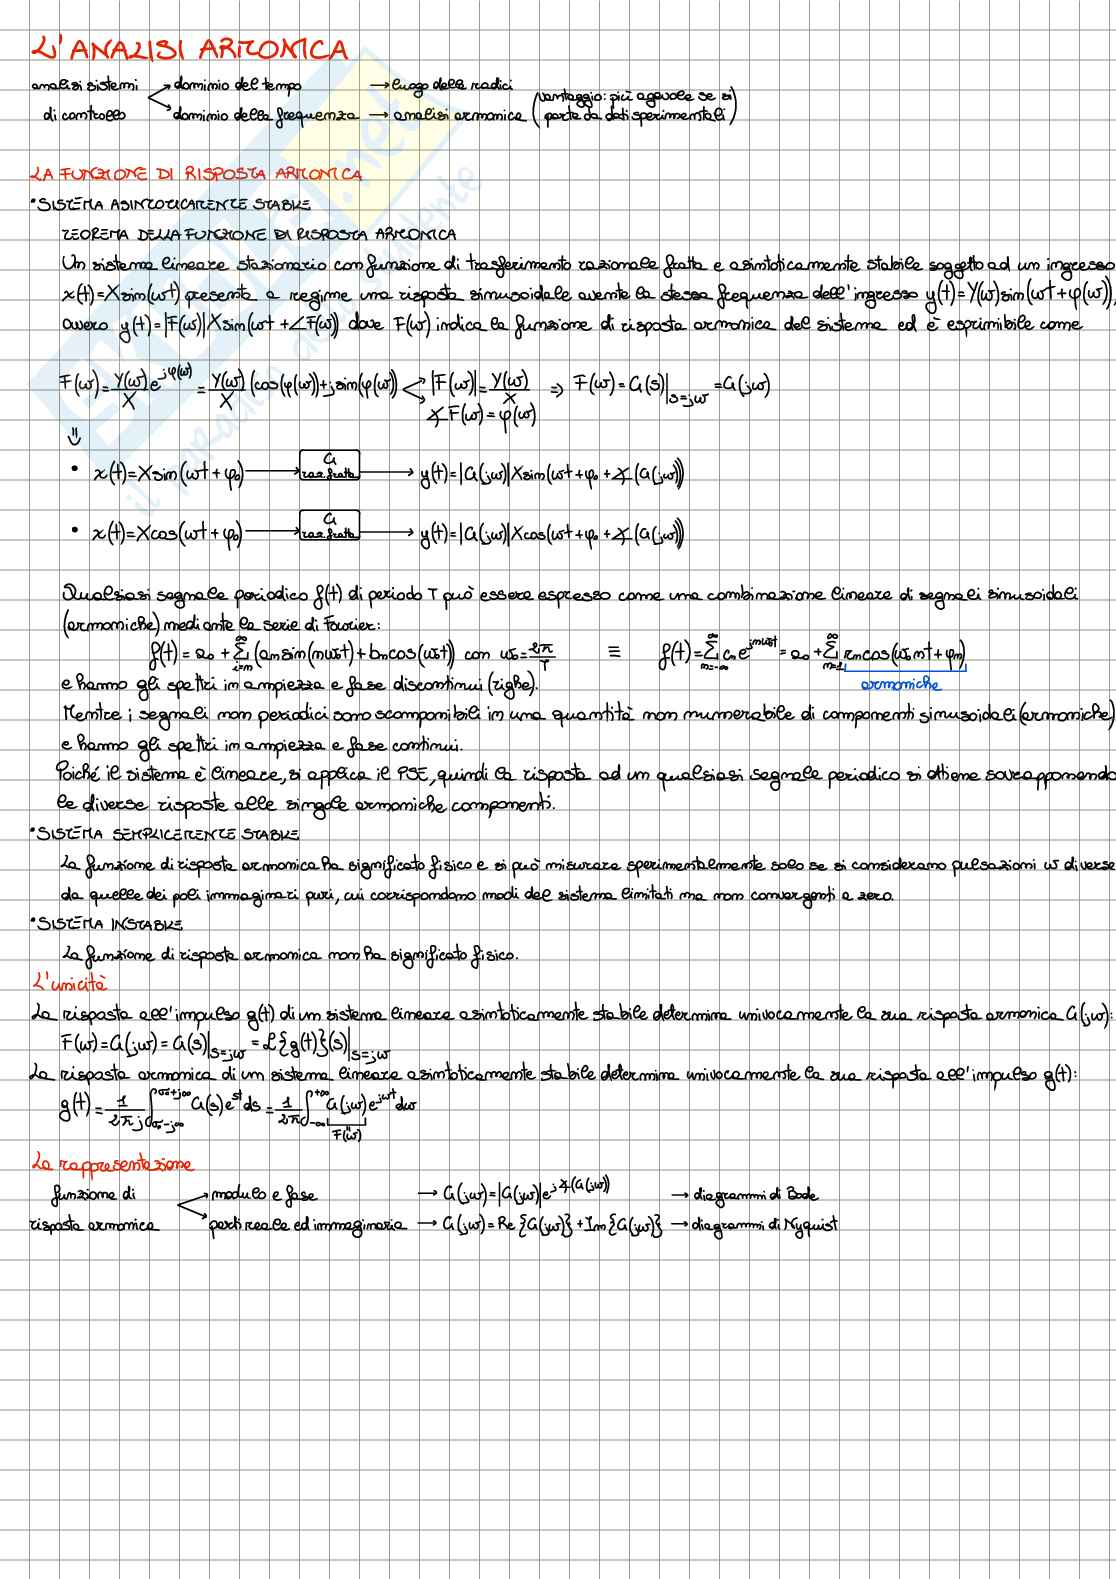 L'ANALISI ARMONICA
analisi sistemi → dominio del tempo → luogo delle radici
di controllo → dominio della frequenza → analisi armonica (vantaggio: più agevole se si parte da dati sperimentali)
LA FUNZIONE DI RISPOSTA ARMONICA
• SISTEMA ASINTOTICAMENTE STABILE
TEOREMA DELLA FUNZIONE DI RISPOSTA ARMONICA
Un sistema lineare stazionario con funzione di trasferimento razionale fratta e asintoticamente stabile soggetto ad un ingresso
x(t)=Xsin(ωt) presenta a regime una risposta sinusoidale avente la stessa frequenza dell'ingresso y(t)=Y(ω)sin(ωt+φ(ω)),
ovvero y(t)=|F(ω)|Xsin(ωt+∠F(ω)) dove F(ω) indica la funzione di risposta armonica del sistema ed è esprimibile come
F(ω)=Y(ω)/X e^jφ(ω) = Y(ω)/X (cos(φ(ω))+jsin(φ(ω))) |F(ω)|=Y(ω)/X ⇒ F(ω)=G(s)|s=jω =G(jω)
∡F(ω)=φ(ω)
⇓
• x(t)=Xsin(ωt+φ₀) → G raz. fratta → y(t)=|G(jω)|Xsin(ωt+φ₀+∡(G(jω)))
• x(t)=Xcos(ωt+φ₀) → G raz. fratta → y(t)=|G(jω)|Xcos(ωt+φ₀+∡(G(jω)))
Qualsiasi segnale periodico f(t) di periodo T può essere espresso come una combinazione lineare di segnali sinusoidali
(armoniche) mediante la serie di Fourier:
f(t)=a₀+∑ i=m ∞ (aₙsin(nω₀t)+bₙcos(ω₀t)) con ω₀=2π/T ≡ f(t)=∑ n=-∞ ∞ cₙe^jnω₀t = a₀+∑ n=1 ∞ rₙcos(ω₀nt+φₙ)
armoniche
e hanno gli spettri in ampiezza e fase discontinui (righe).
Mentre i segnali non periodici sono scomponibili in una quantità non numerabile di componenti sinusoidali (armoniche)
e hanno gli spettri in ampiezza e fase continui.
Poiché il sistema è lineare, si applica il PSE, quindi la risposta ad un qualsiasi segnale periodico si ottiene sovrapponendo
le diverse risposte alle singole armoniche componenti.
• SISTEMA SEMPLICEMENTE STABILE
La funzione di risposta armonica ha significato fisico e si può misurare sperimentalmente solo se si considerano pulsazioni ω diverse
da quelle dei poli immaginari puri, cui corrispondono modi del sistema limitati ma non convergenti a zero.
• SISTEMA INSTABILE
La funzione di risposta armonica non ha significato fisico.
L'unicità
La risposta all'impulso g(t) di un sistema lineare asintoticamente stabile determina univocamente la sua risposta armonica G(jω):
F(ω)=G(jω)=G(s)|s=jω =ℒ{g(t)}(s)|s=jω
La risposta armonica di un sistema lineare asintoticamente stabile determina univocamente la sua risposta all'impulso g(t):
g(t)=1/2πj ∫σ₀-j∞ σ₀+j∞ G(s)e^st ds = 1/2π ∫-∞ +∞ G(jω)e^jωt dω
F(ω)
La rappresentazione
funzione di → modulo e fase → G(jω)=|G(jω)|e^j∡(G(jω)) → diagrammi di Bode
risposta armonica → parti reale ed immaginaria → G(jω)=Re{G(jω)}+Im{G(jω)} → diagrammi di Nyquist